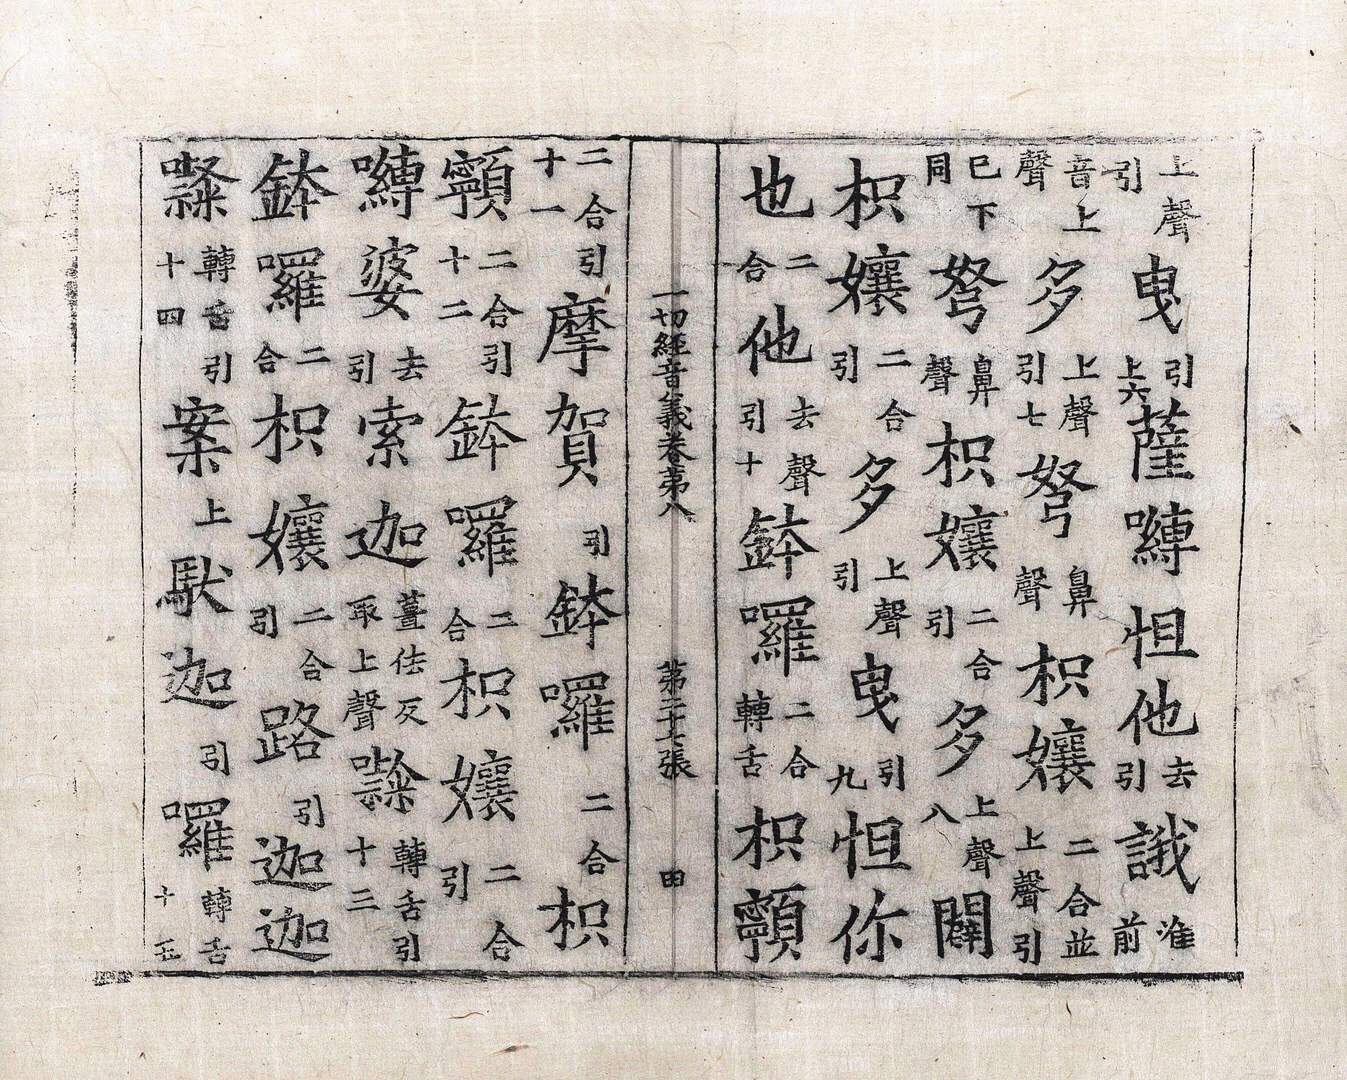 上聲引曳引上六薩嚩怛他去引誐准前
音上聲多上聲引七弩鼻聲枳孃二合並上聲引
已下同弩鼻聲枳孃二合引多上聲八闢
枳孃二合引多上聲引曳引九怛你
也二合他去聲引十鉢囉二合轉舌枳顐
一切經音義卷第八 第二十七張 田
二合引十一摩賀引鉢囉二合枳
顐二合引十二鉢囉二合枳孃二合引
嚩婆去引索迦薑佉反取上聲轉舌引十三
鉢囉二合枳孃二合引路引迦迦
轉舌引十四案上馱迦引囉轉舌十五